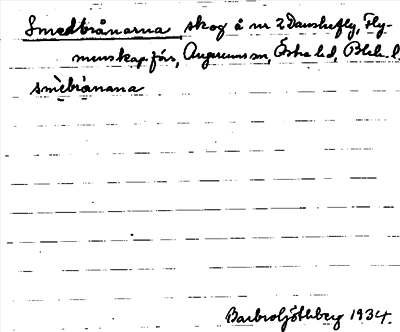 Smedbrånarna skog å nr 2 Danskefly, Fly-
menskap förs, Augerums sn, Östra hd, Blek. l.
smèbrånana
Barbro Göthberg 1934.